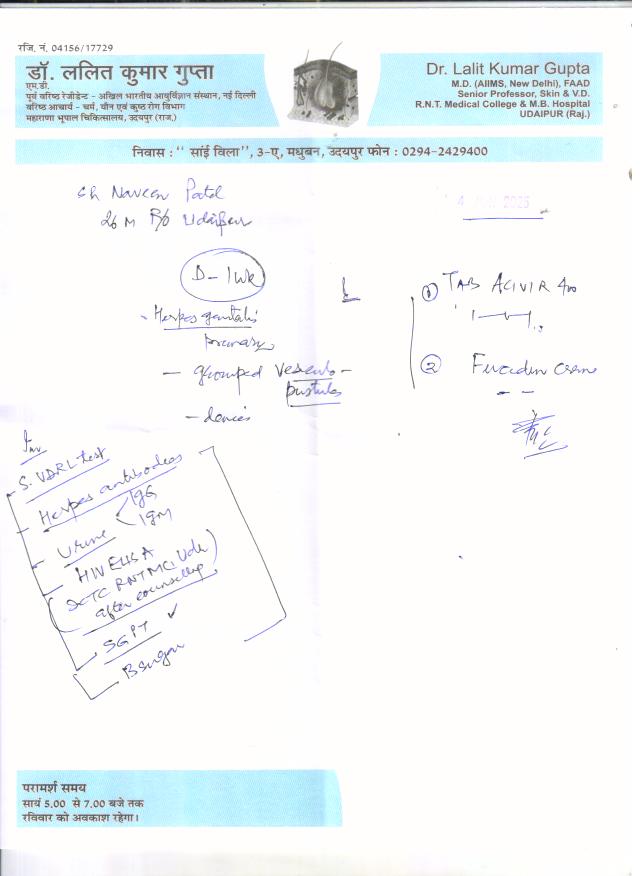 रजि. नं. 04156/17729
डॉ. ललित कुमार गुप्ता
एम.डी.
पूर्व वरिष्ठ रेजीडेन्ट - अखिल भारतीय आयुर्विज्ञान संस्थान, नई दिल्ली
वरिष्ठ आचार्य - चर्म, यौन एवं कुष्ठ रोग विभाग
महाराणा भूपाल चिकित्सालय, उदयपुर (राज.)
Dr. Lalit Kumar Gupta
M.D. (AIIMS, New Delhi), FAAD
Senior Professor, Skin & V.D.
R.N.T. Medical College & M.B. Hospital
UDAIPUR (Raj.)
निवास : " सांई विला", 3-ए, मधुबन, उदयपुर फोन : 0294-2429400
Sh Naveen Patel
26 M R/o Udaipur
D - 1 wk
- Herpes genitalis
primary
- grouped vesiculo -
pustules
- denies
① TAB ACIVIR 400
② Fucidin Creme
Inv
S. VDRL test
- Herpes antibodies
IgG
IgM
- Urine
- HIV ELISA
(ICTC RNTMC, Udr)
after counselling
- SGPT ✓
- B sugar
परामर्श समय
सायं 5.00 से 7.00 बजे तक
रविवार को अवकाश रहेगा।